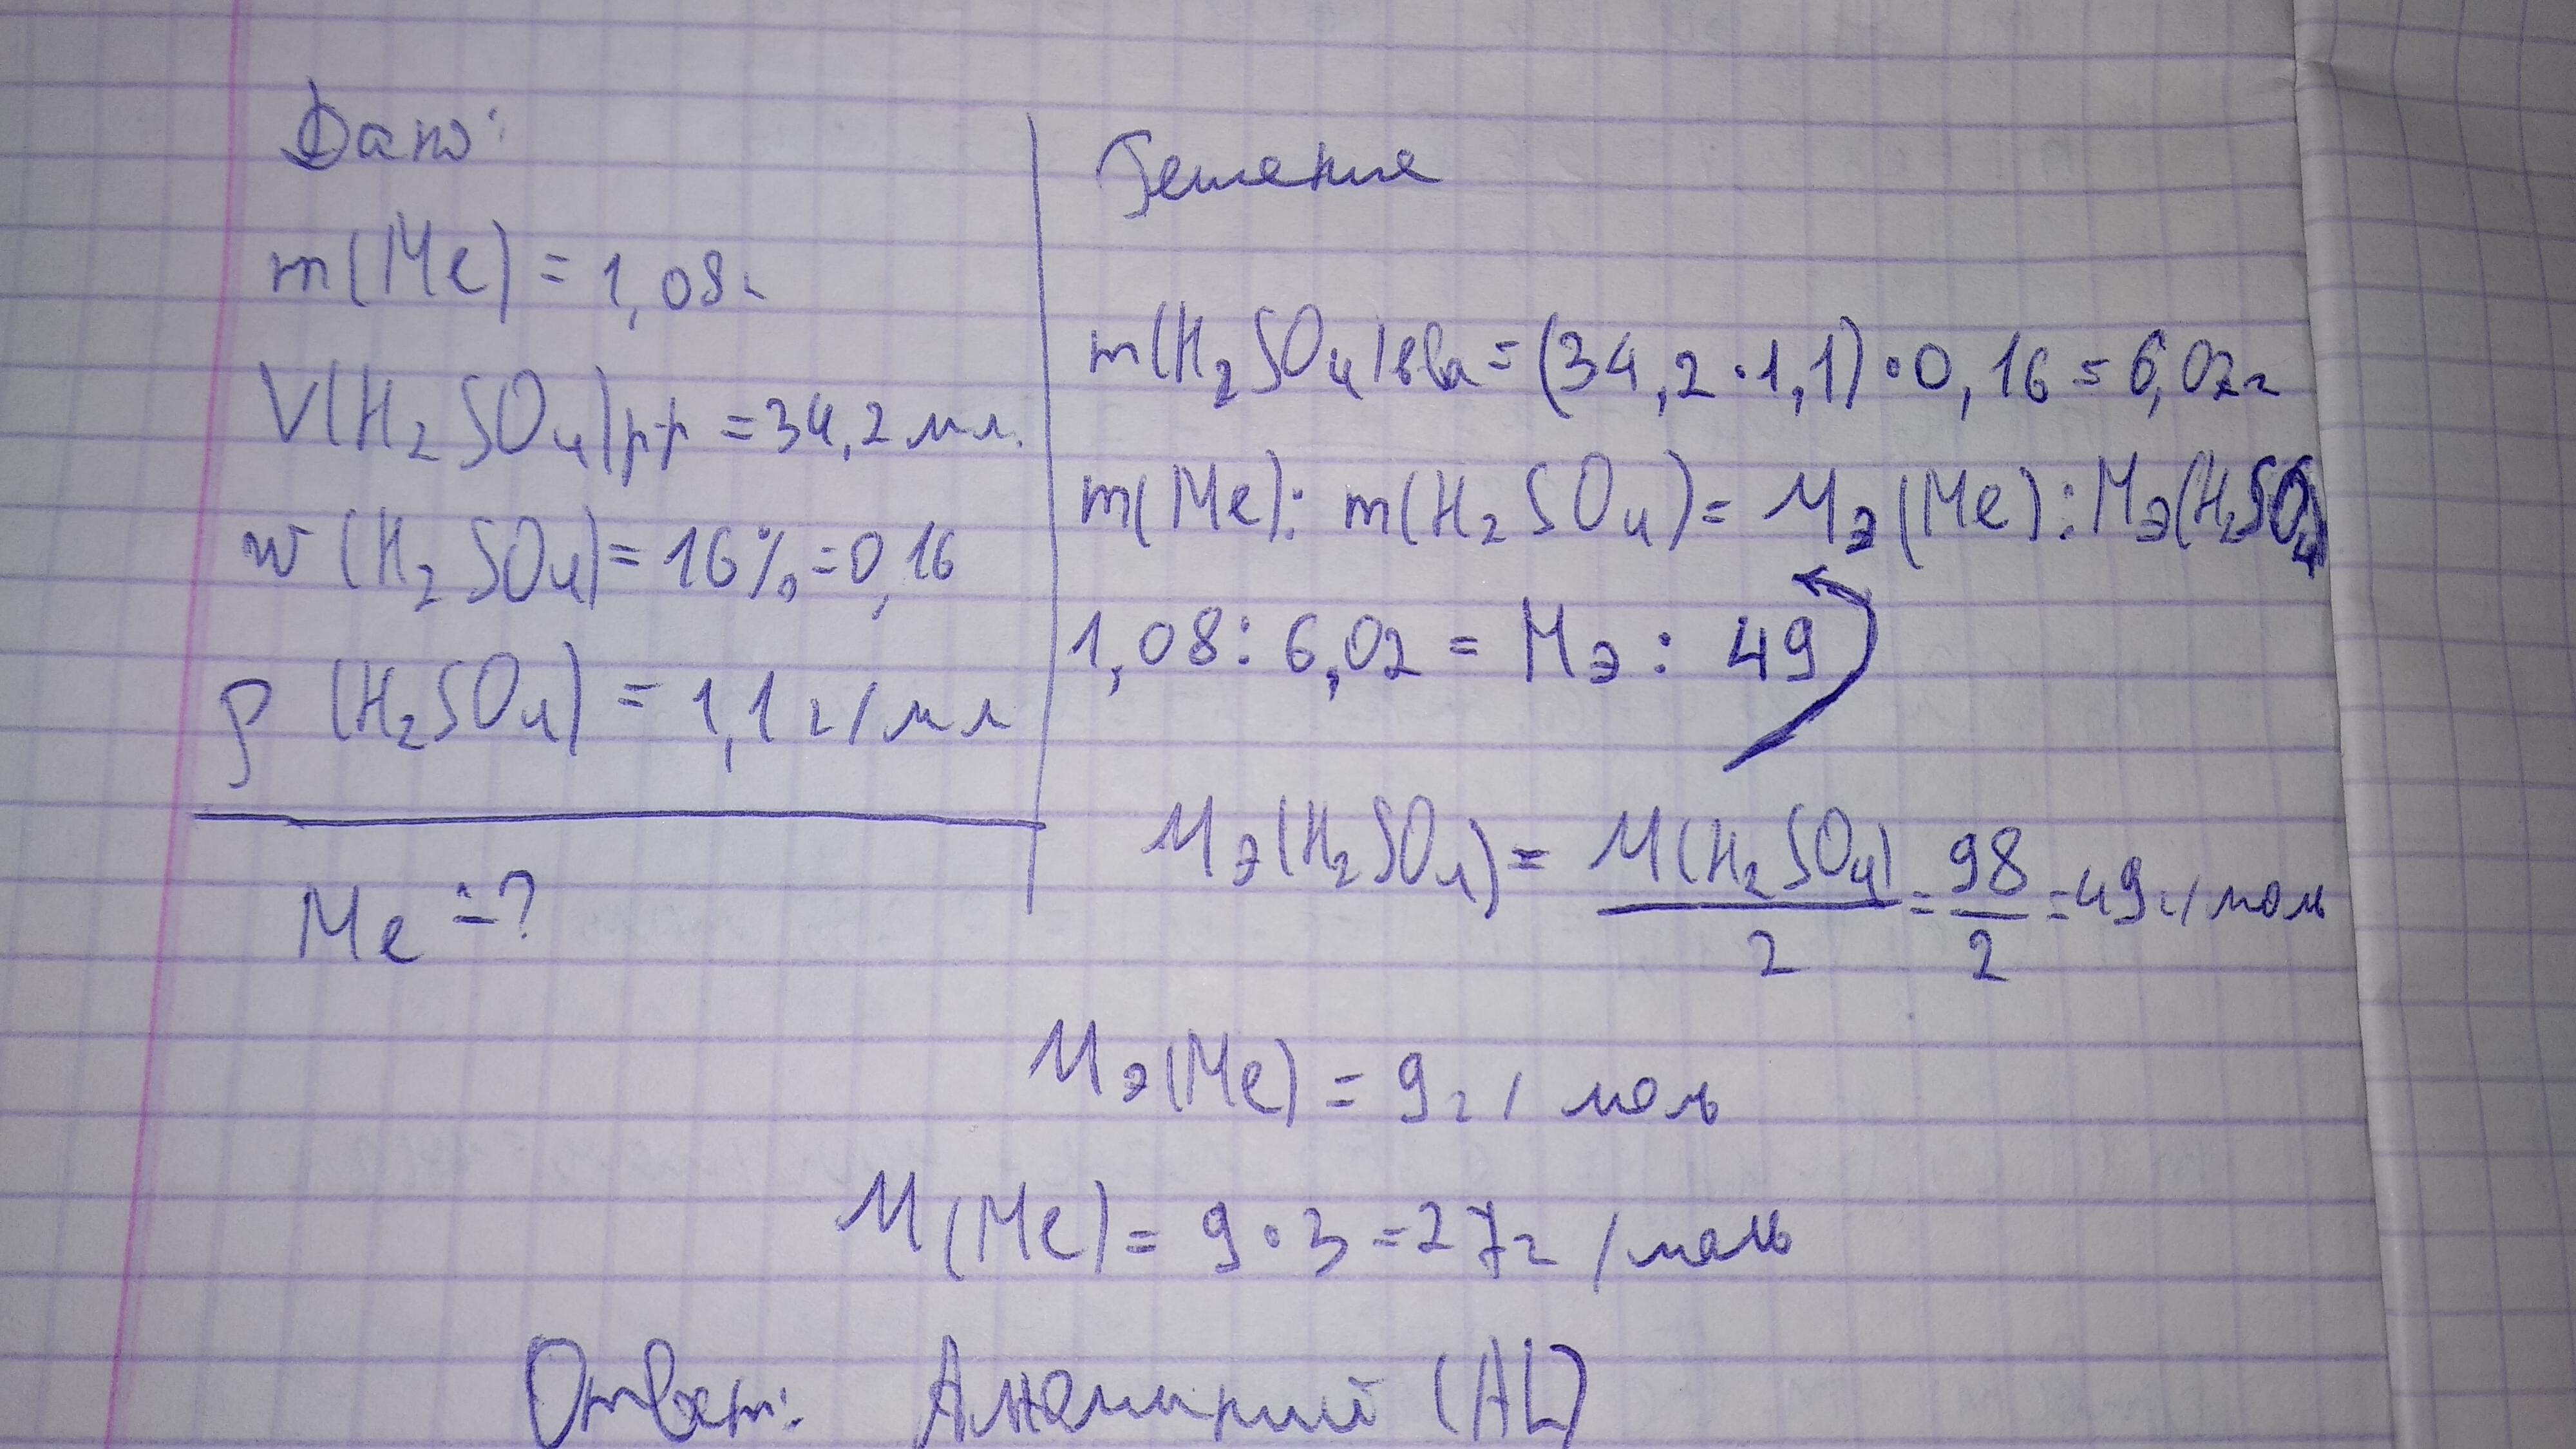 Дано:
m(Me) = 1,08г
V(H2SO4)р-р = 34,2 мл.
w (H2SO4) = 16% = 0,16
ρ (H2SO4) = 1,1 г/мл
Me = ?
Решение
m(H2SO4)в-ва = (34,2 · 1,1) · 0,16 = 6,02г
m(Me) : m(H2SO4) = Mэ(Me) : Mэ(H2SO4)
1,08 : 6,02 = Mэ : 49
Mэ(H2SO4) = M(H2SO4)/2 = 98/2 = 49г/моль
Mэ(Me) = 9г/моль
M(Me) = 9 · 3 = 27г/моль
Ответ: Алюминий (AL)